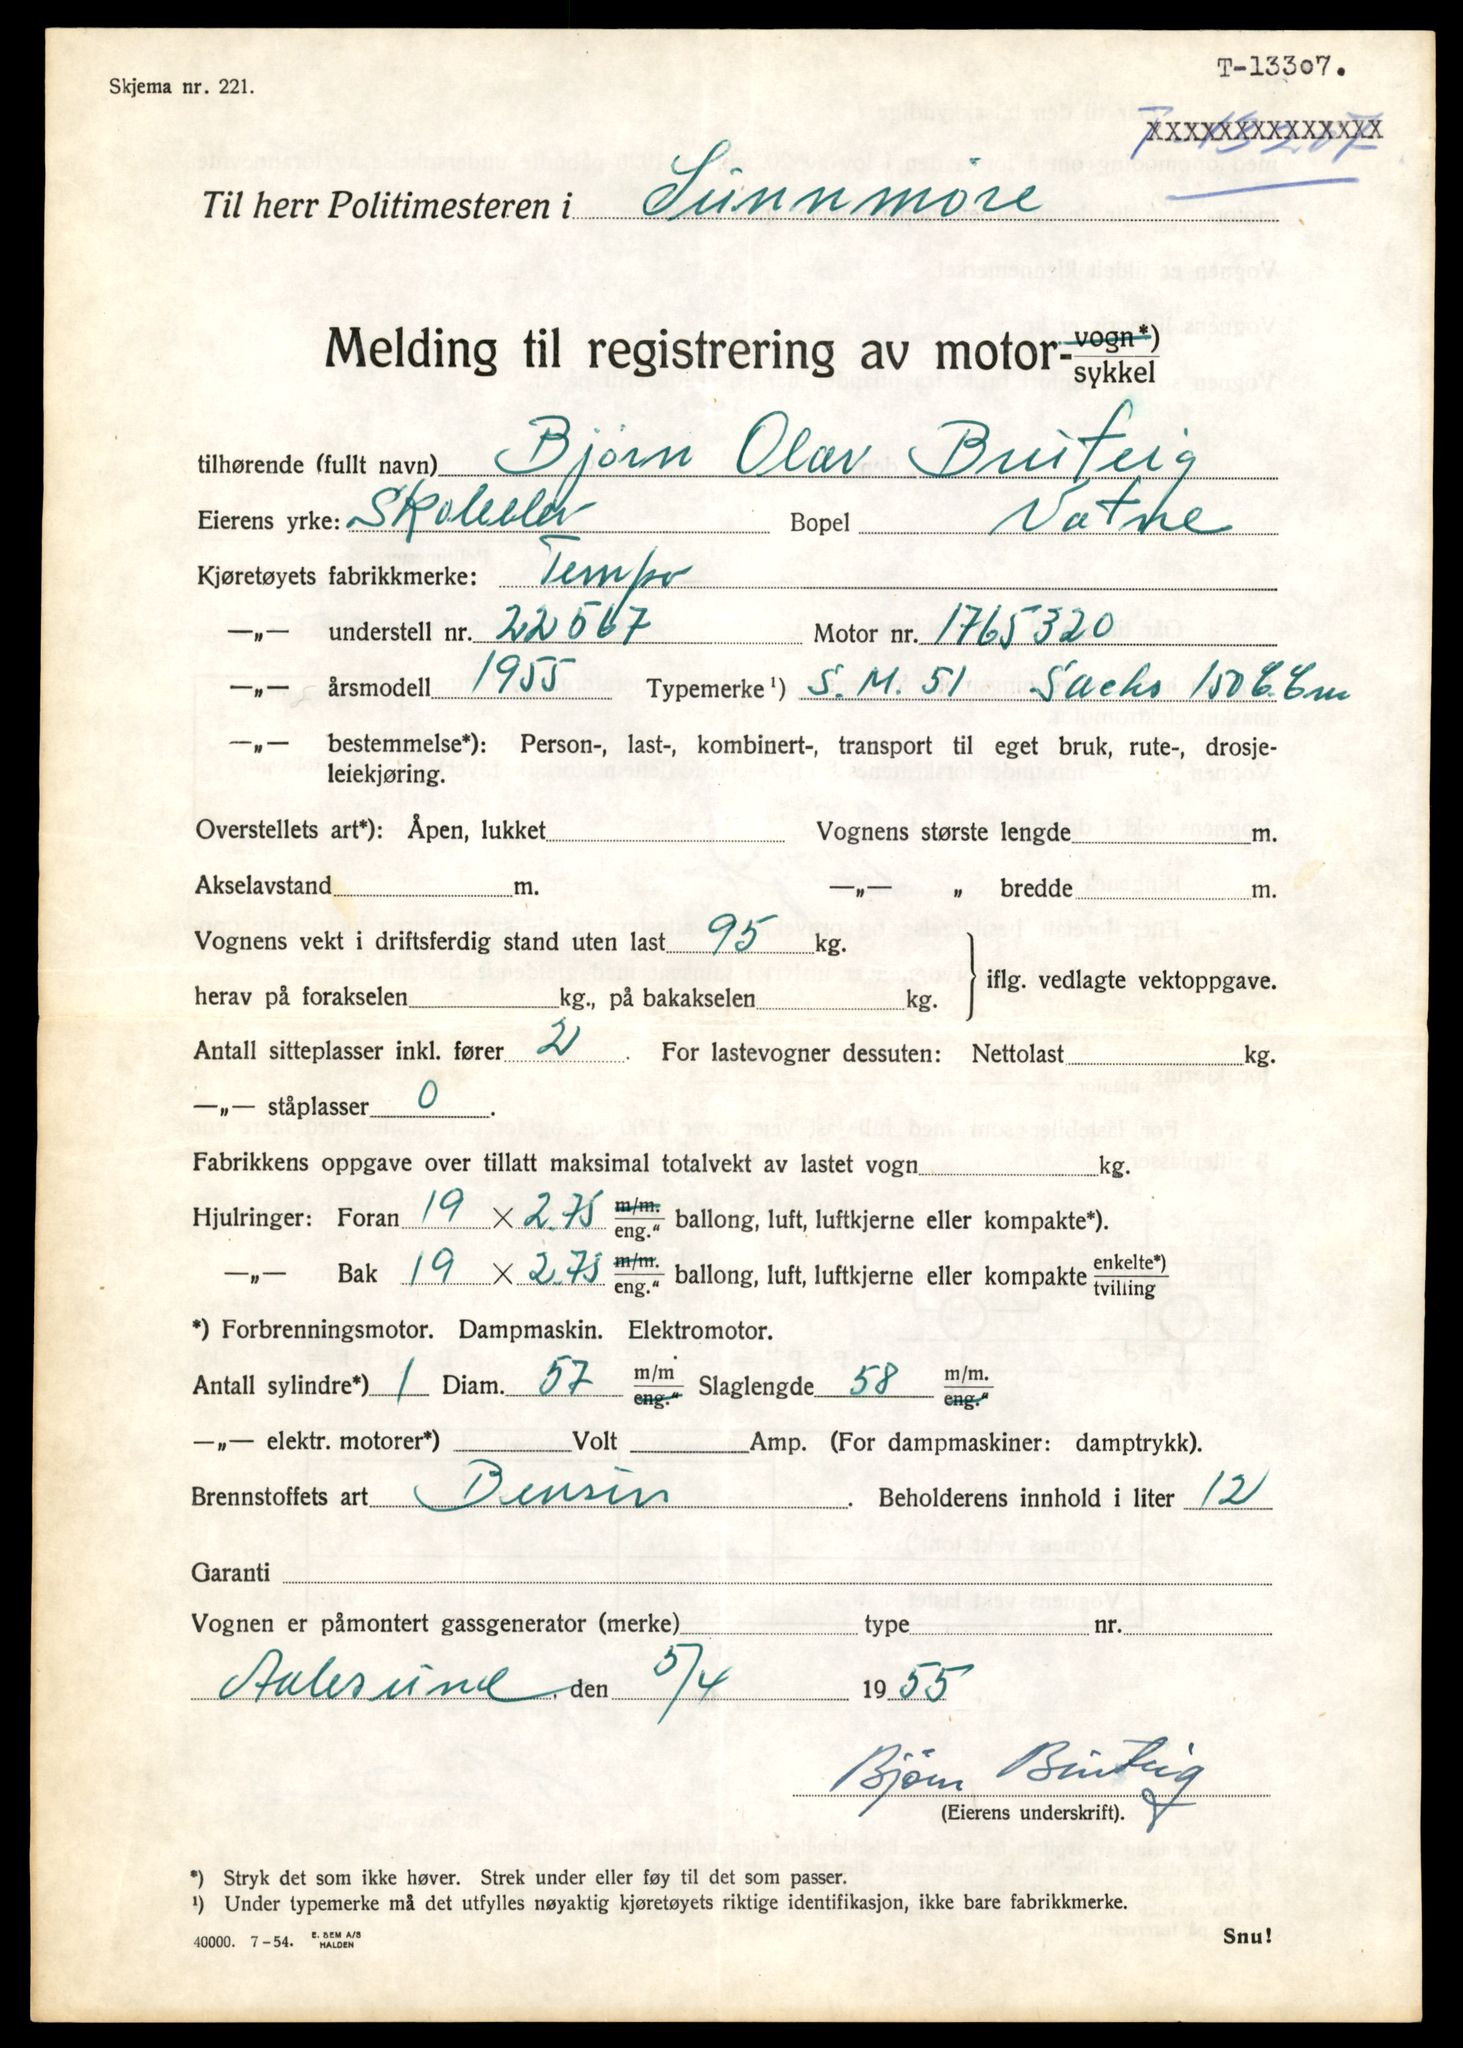 Skjema nr. 221.
T-13307.
XXXXXXXXXXXXXX
Til herr Politimesteren i Sunnmöre
Melding til registrering av motor-vogn*)
sykkel
tilhørende (fullt navn) Bjørn Olav Bruteig
Eierens yrke: Skoleelev Bopel Vatne
Kjøretøyets fabrikkmerke: Tempo
—„— understell nr. 22567 Motor nr. 1765320
—„— årsmodell 1955 Typemerke¹) S.M. 51 Sachs 150 C.Cm
—„— bestemmelse*): Person-, last-, kombinert-, transport til eget bruk, rute-, drosje-
leiekjøring.
Overstellets art*): Åpen, lukket Vognens største lengde m.
Akselavstand m. —„— „ bredde m.
Vognens vekt i driftsferdig stand uten last 95 kg.
herav på forakselen kg., på bakakselen kg. iflg. vedlagte vektoppgave.
Antall sitteplasser inkl. fører 2. For lastevogner dessuten: Nettolast kg.
—„— ståplasser 0.
Fabrikkens oppgave over tillatt maksimal totalvekt av lastet vogn kg.
Hjulringer: Foran 19 × 2.75 m/m. eng.“ ballong, luft, luftkjerne eller kompakte*).
—„— Bak 19 × 2.75 m/m. eng.“ ballong, luft, luftkjerne eller kompakte enkelte*) tvilling
*) Forbrenningsmotor. Dampmaskin. Elektromotor.
Antall sylindre*) 1 Diam. 57 m/m eng.“ Slaglengde 58 m/m. eng.“
—„— elektr. motorer*) Volt Amp. (For dampmaskiner: damptrykk).
Brennstoffets art Bensin. Beholderens innhold i liter 12
Garanti
Vognen er påmontert gassgenerator (merke) type nr.
Aalesund, den 5/4 1955
Bjørn Bruteig
(Eierens underskrift).
*) Stryk det som ikke høver. Strek under eller føy til det som passer.
¹) Under typemerke må det utfylles nøyaktig kjøretøyets riktige identifikasjon, ikke bare fabrikkmerke.
40000. 7-54. E. SEM A/S
HALDEN
Snu!